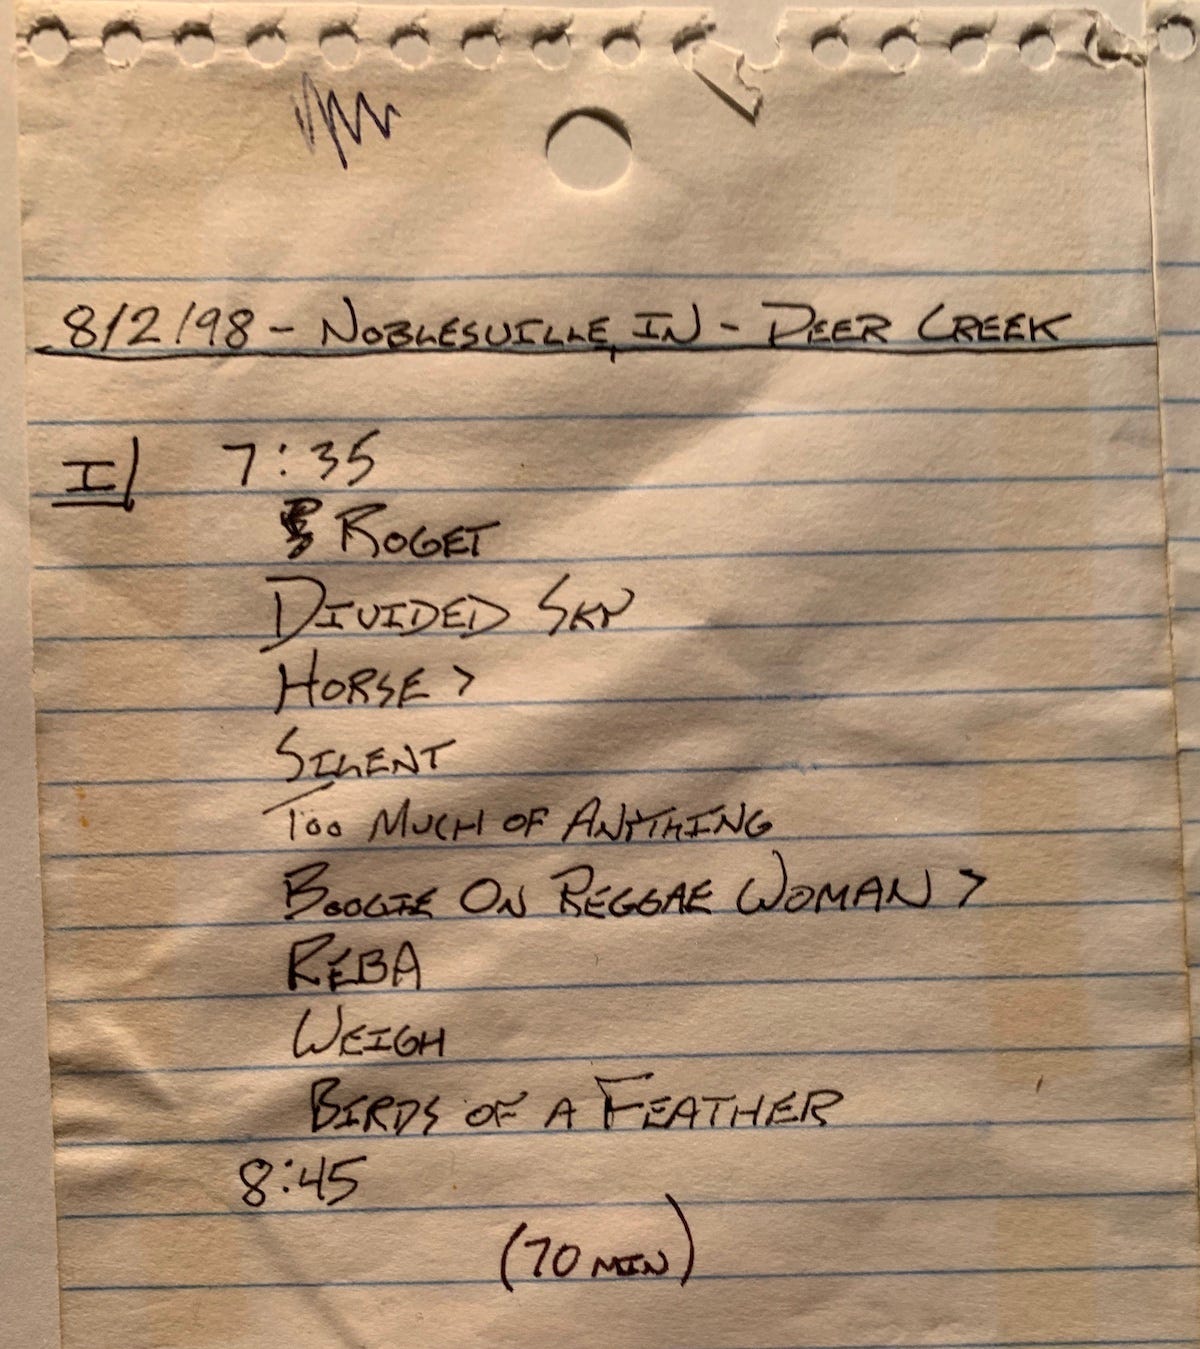 8/2/98 - NOBLESVILLE, IN - DEER CREEK
I/ 7:35
ROGET
DIVIDED SKY
HORSE >
SILENT
TOO MUCH OF ANYTHING
BOOGIE ON REGGAE WOMAN >
REBA
WEIGH
BIRDS OF A FEATHER
8:45
(70 MIN)